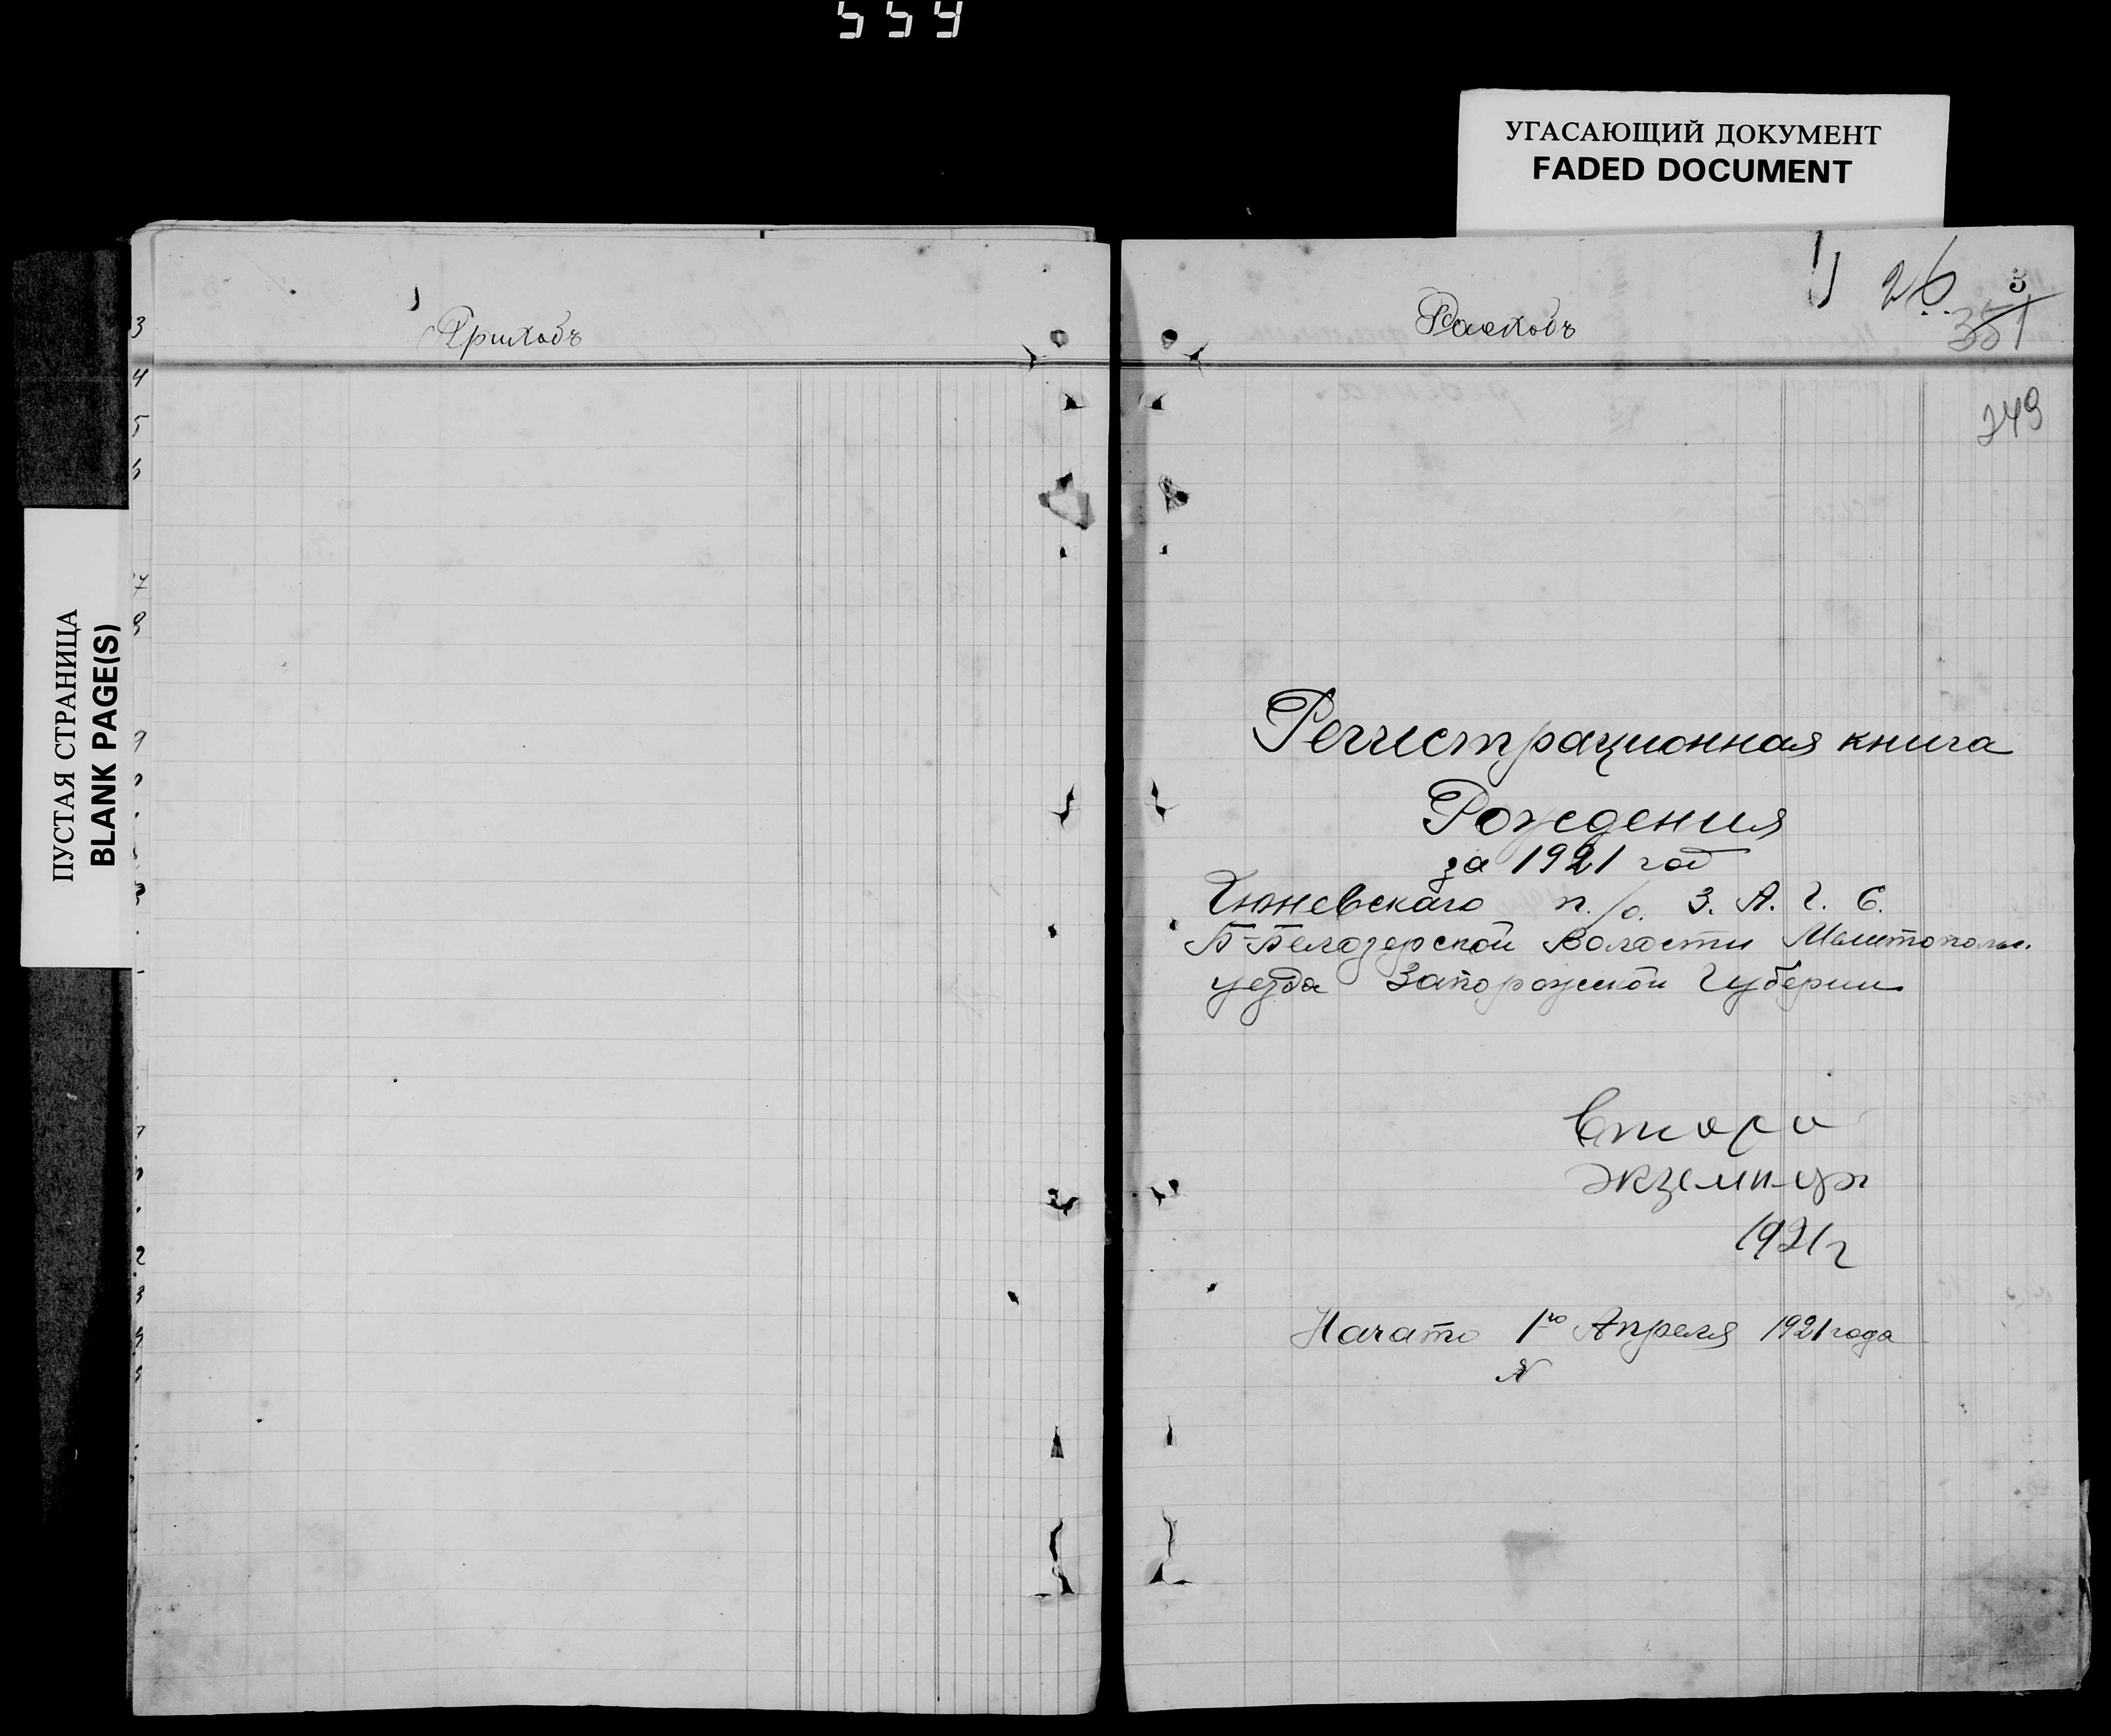 554
УГАСАЮЩИЙ ДОКУМЕНТ
FADED DOCUMENT
ПУСТАЯ СТРАНИЦА
BLANK PAGE(S)
3
4
5
6
7
8
9
Приходъ
Расходъ
26
351
349
Регистрационная книга
Рождения
за 1921 год
п./о. З. А. Г. С.
Б-Белозерской Волости Мелитопольс.
уезда Запорожской Губернии
Второй
экземпляр
1921г
Начато 1го Апреля 1921 года